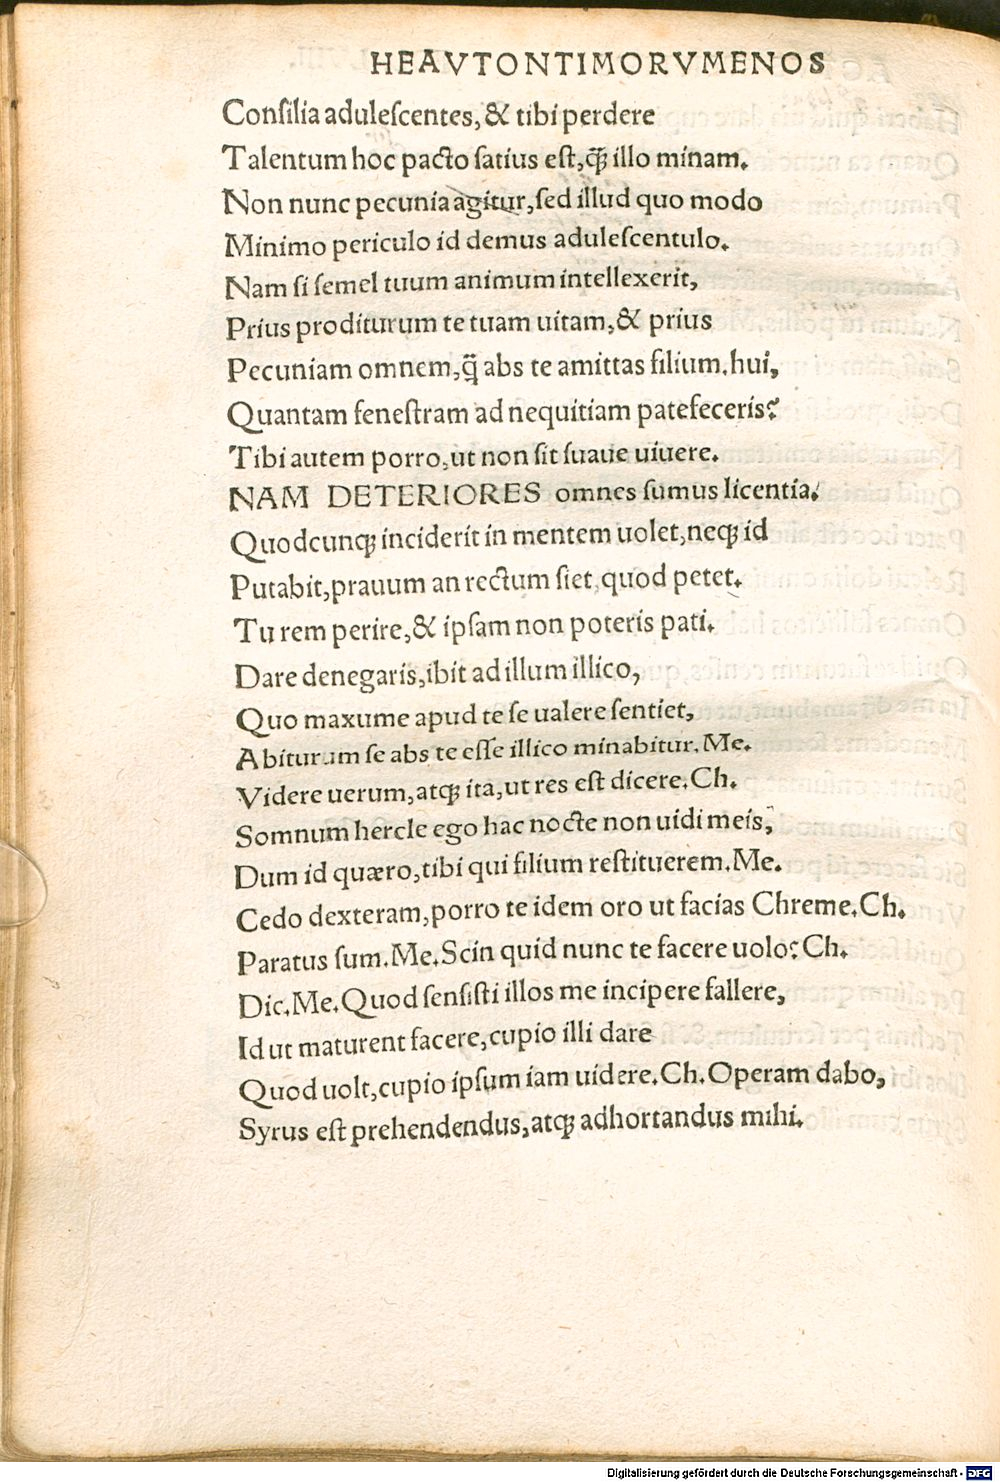 HEAVTONTIMORVMENOS
Conſilia aduleſcentes, & tibi perdere
Talentum hoc pacto ſatius eſt, q̃ illo minam.
Non nunc pecunia agitur, ſed illud quo modo
Minimo periculo id demus aduleſcentulo.
Nam ſi ſemel tuum animum intellexerit,
Prius proditurum te tuam uitam, & prius
Pecuniam omnem, q̃ abs te amittas filium. hui,
Quantam feneſtram ad nequitiam patefeceris?
Tibi autem porro, ut non ſit ſuaue uiuere.
NAM DETERIORES omnes ſumus licentia.
Quodcunqꝫ inciderit in mentem uolet, neqꝫ id
Putabit, prauum an rectum ſiet, quod petet.
Tu rem perire, & ipſam non poteris pati.
Dare denegaris, ibit ad illum illico,
Quo maxume apud te ſe ualere ſentiet,
Abiturum ſe abs te eſſe illico minabitur. Me.
Videre uerum, atqꝫ ita, ut res eſt dicere. Ch.
Somnum hercle ego hac nocte non uidi meis,
Dum id quæro, tibi qui filium reſtituerem. Me.
Cedo dexteram, porro te idem oro ut facias Chreme. Ch.
Paratus ſum. Me. Scin quid nunc te facere uolo? Ch.
Dic. Me. Quod ſenſiſti illos me incipere fallere,
Id ut maturent facere, cupio illi dare
Quod uolt, cupio ipſum iam uidere. Ch. Operam dabo,
Syrus eſt prehendendus, atqꝫ adhortandus mihi.
Digitalisierung gefördert durch die Deutsche Forschungsgemeinschaft - DFG